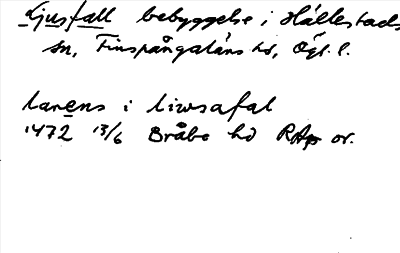 Ljusfall bebyggelse i Hällestads
sn, Finspångaläns hd, Ögl. l.
larens i liwsafal
1472 13/6 Bråbo hd RAp or.